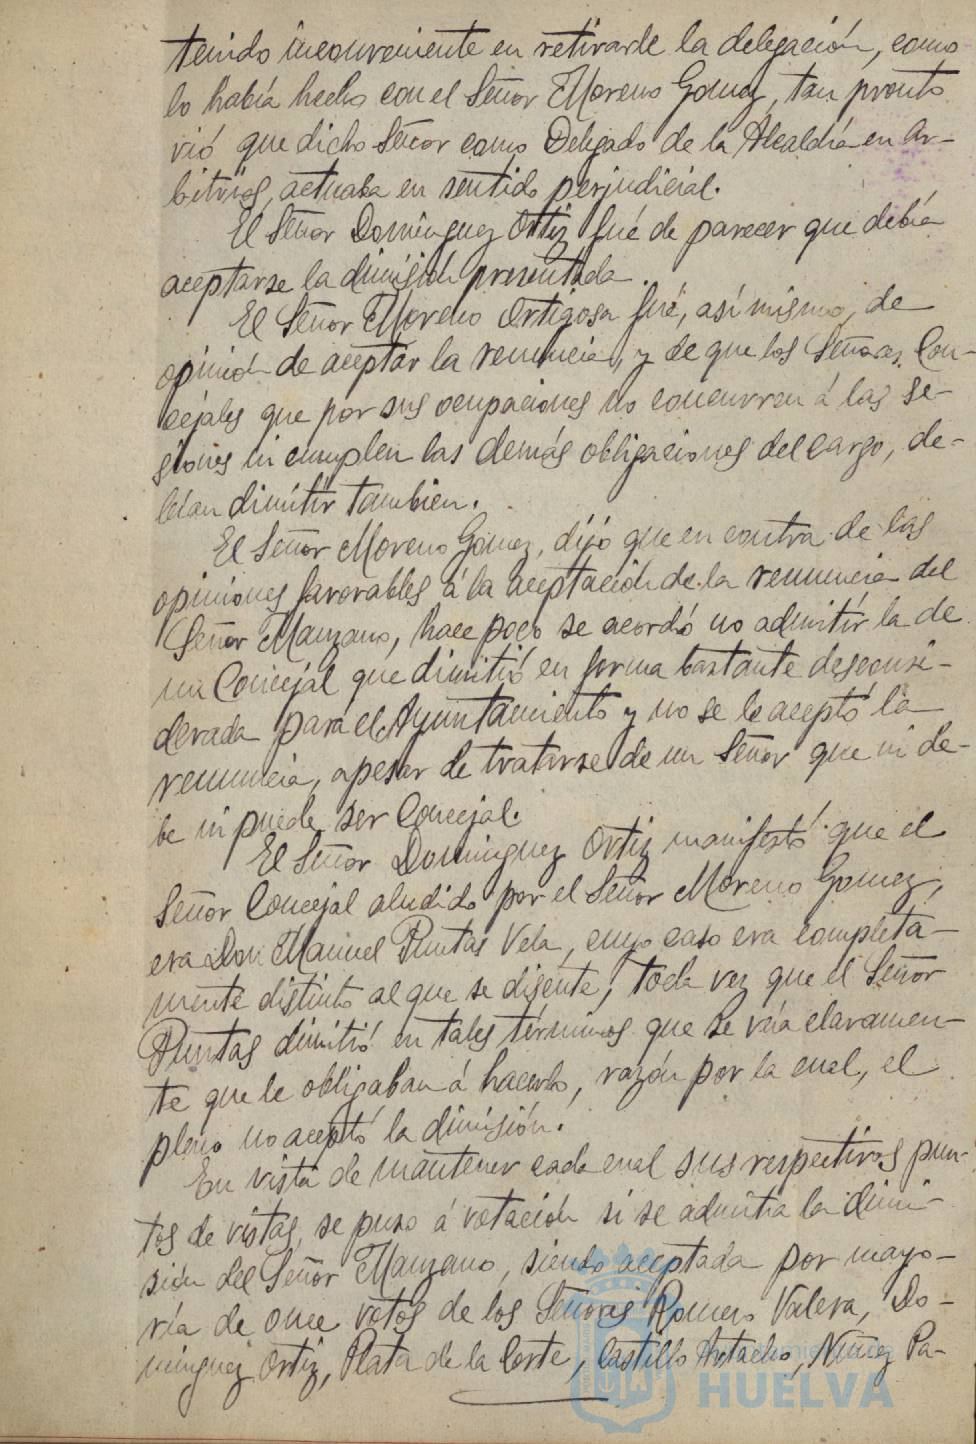 tenido inconveniente en retirarle la delegación, como
lo había hecho con el Señor Moreno Gomez, tan pronto
vió que dicho Señor como Delegado de la Alcaldía en Ar-
bitrios, actuaba en sentido perjudicial.
El Señor Dominguez Ortiz fué de parecer que debía
aceptarse la dimisión presentada.
El Señor Moreno Ortigosa fué, así mismo, de
opinión de aceptar la renuncia, y de que los Señores Con-
cejales que por sus ocupaciones no concurren á las se-
siones ni cumplen las demás obligaciones del cargo, de-
bían dimitir tambien.
El Señor Moreno Gomez, dijo que en contra de las
opiniones favorables á la aceptación de la renuncia del
Señor Manzano, hace poco se acordó no admitir la de
un Concejal que dimitió en forma bastante desconsi-
derada para el Ayuntamiento y no se le aceptó la
renuncia, apesar de tratarse de un Señor que ni de-
be ni puede ser Concejal.
El Señor Dominguez Ortiz manifestó que el
Señor Concejal aludido por el Señor Moreno Gomez,
era Don Manuel Puntas Vela, cuyo caso era completa-
mente distinto al que se discute, toda vez que el Señor
Puntas dimitió en tales términos que se veía claramen-
te que le obligaban á hacerlo, razón por la cual, el
pleno no aceptó la dimisión.
En vista de mantener cada cual sus respectivos pun-
tos de vistas, se puso á votación si se admitía la dimi-
sión del Señor Manzano, siendo aceptada por mayo-
ría de once votos de los Señores Romero Valera, Do-
minguez Ortiz, Plata de la Corte, Castillo Artacho, Nuñez Pa-
HUELVA